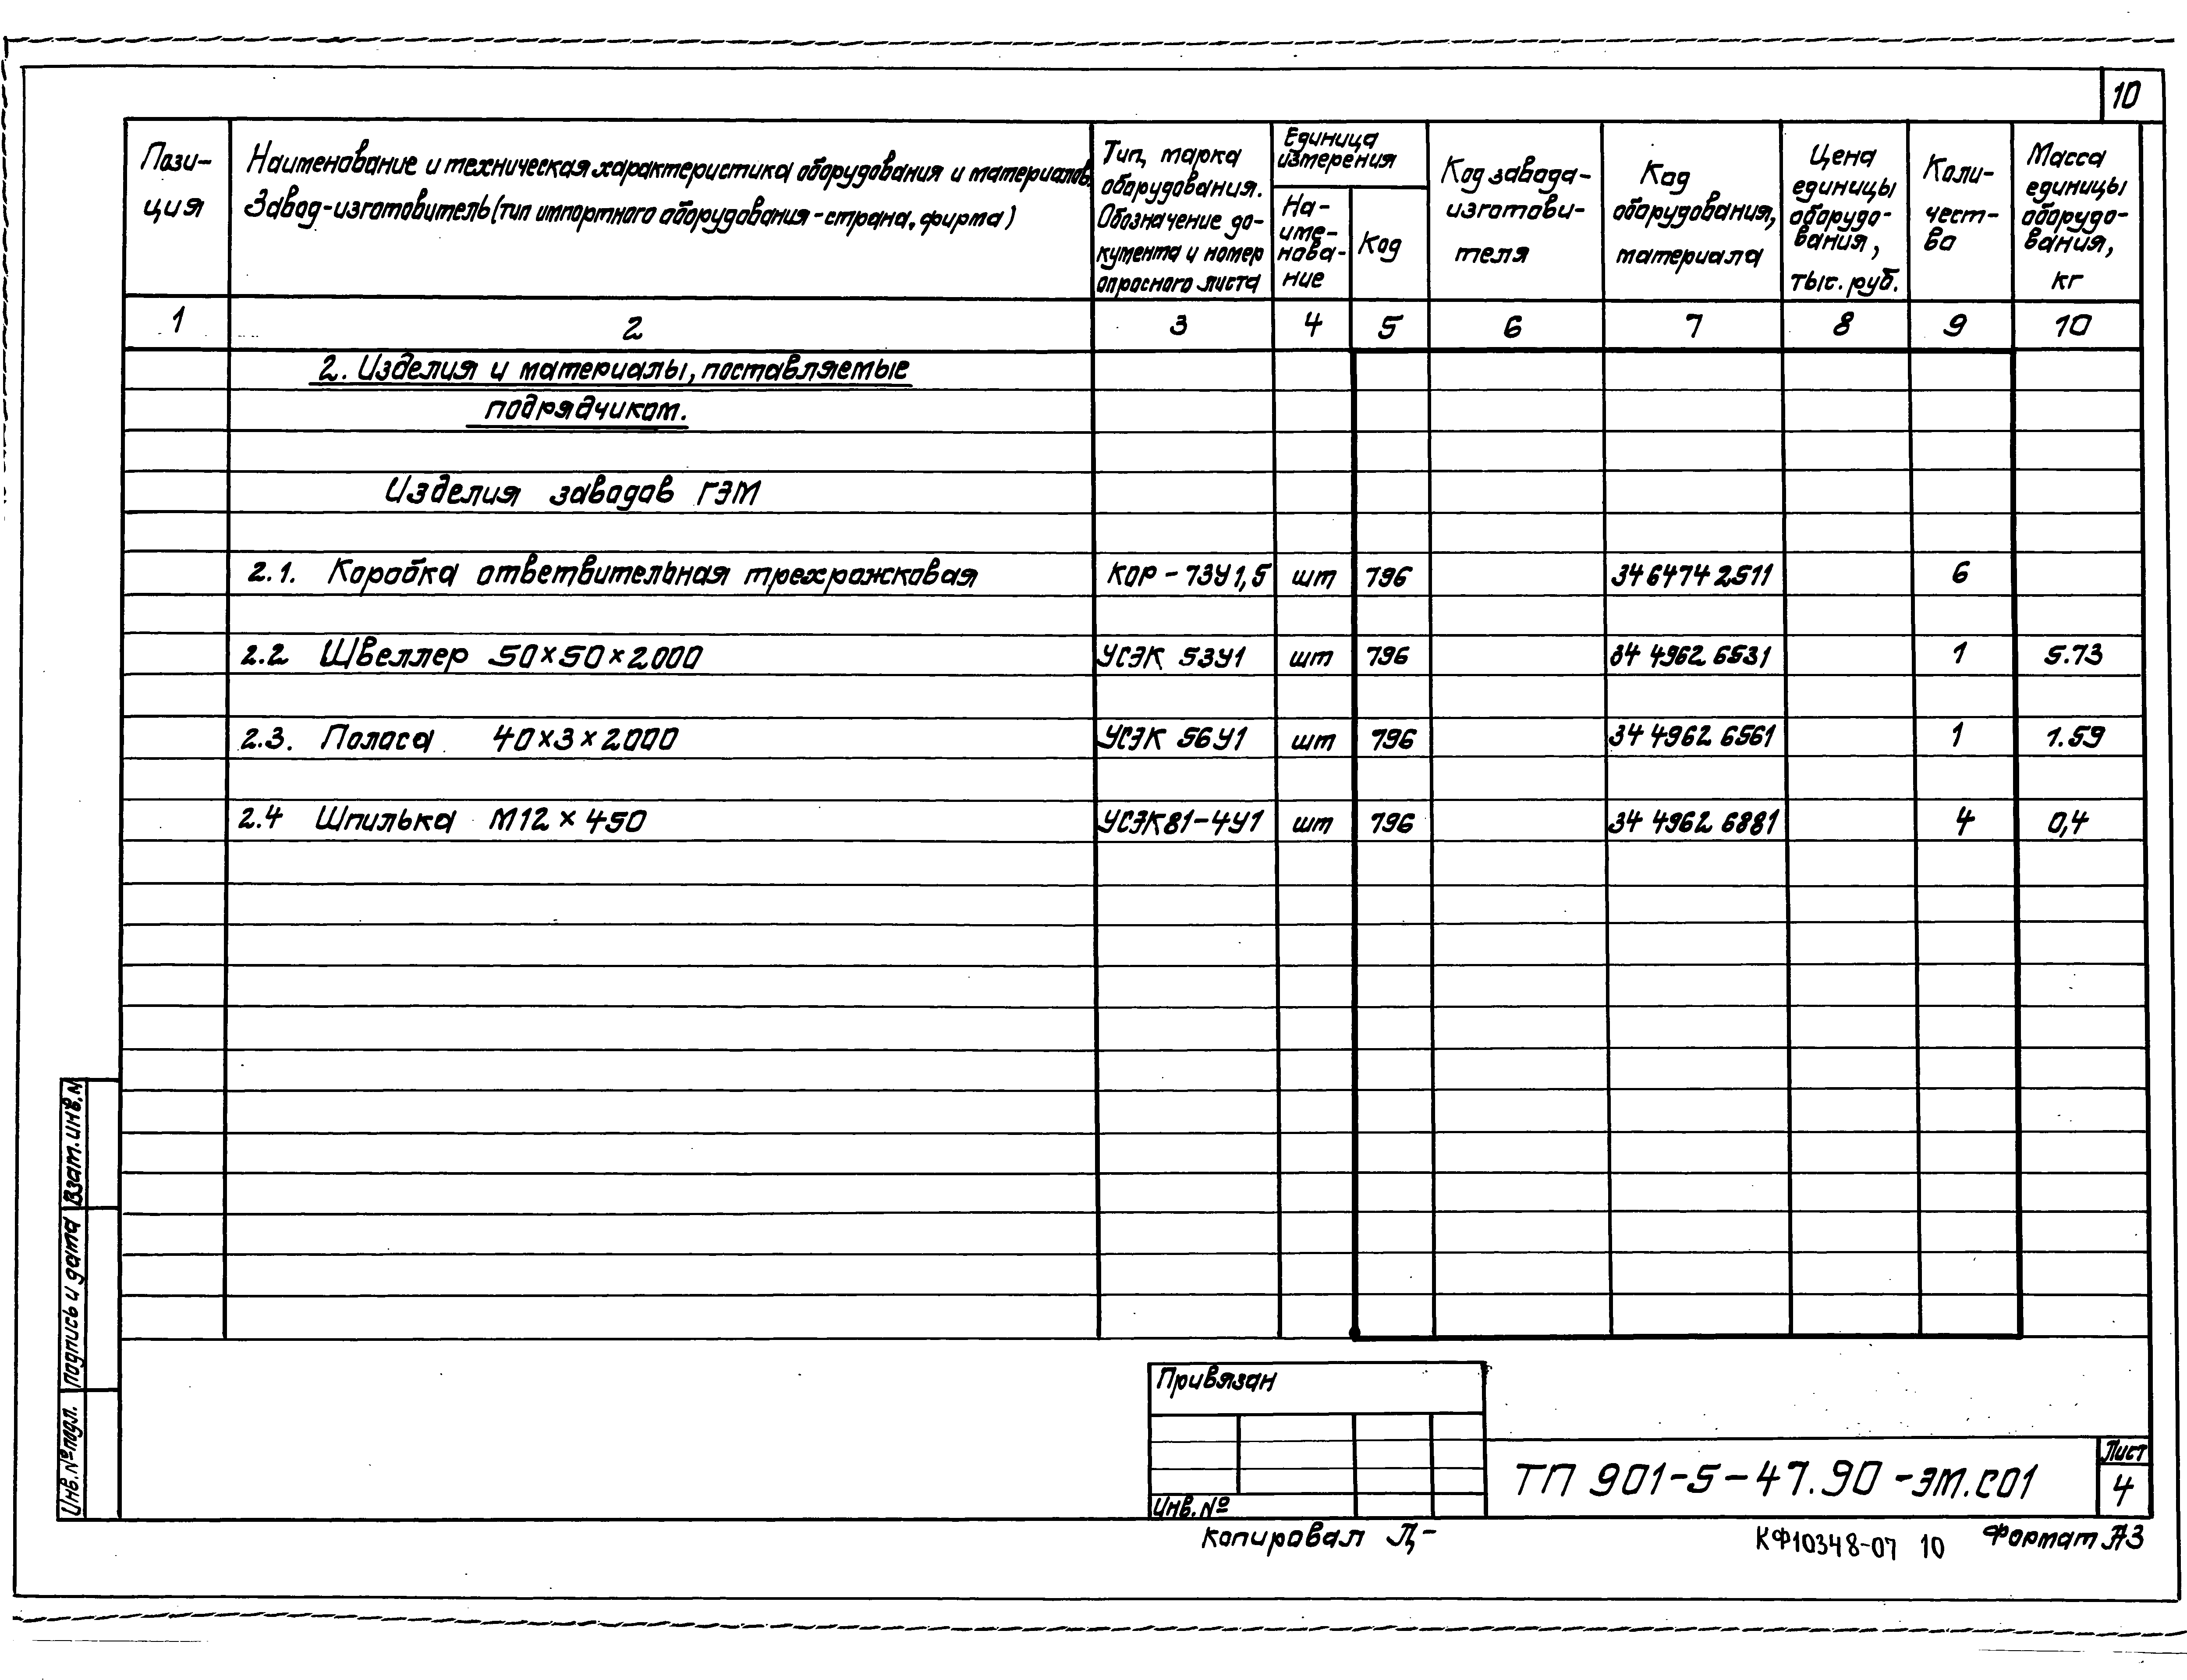 10
Пози-
ция
Наименование и техническая характеристика оборудования и материалов.
Завод-изготовитель (тип импортного оборудования - страна, фирма)
Тип, марка
оборудования.
Обозначение до-
кумента и номер
опросного листа
Единица
измерения
На-
име-
нова-
ние
Код
Код завода-
изготови-
теля
Код
оборудования,
материала
Цена
единицы
оборудо-
вания,
тыс. руб.
Коли-
чест-
во
Масса
единицы
оборудо-
вания,
кг
1 2 3 4 5 6 7 8 9 10
2. Изделия и материалы, поставляемые
подрядчиком.
Изделия заводов ГЭМ
2.1. Коробка ответвительная трехрожковая КОР-73У1,5 шт 796 34 6474 2511 6
2.2 Швеллер 50×50×2000 УСЭК 53У1 шт 796 34 4962 6531 1 5.73
2.3. Полоса 40×3×2000 УСЭК 56У1 шт 796 34 4962 6561 1 1.59
2.4 Шпилька М12×450 УСЭК81-4У1 шт 796 34 4962 6881 4 0,4
Взам. инв. N
Подпись и дата
Инв. № подл.
Привязан
Инв. №
ТП 901-5-47.90-ЭМ.СО1
Лист
4
Копировал
КФ10348-07 10
Формат А3